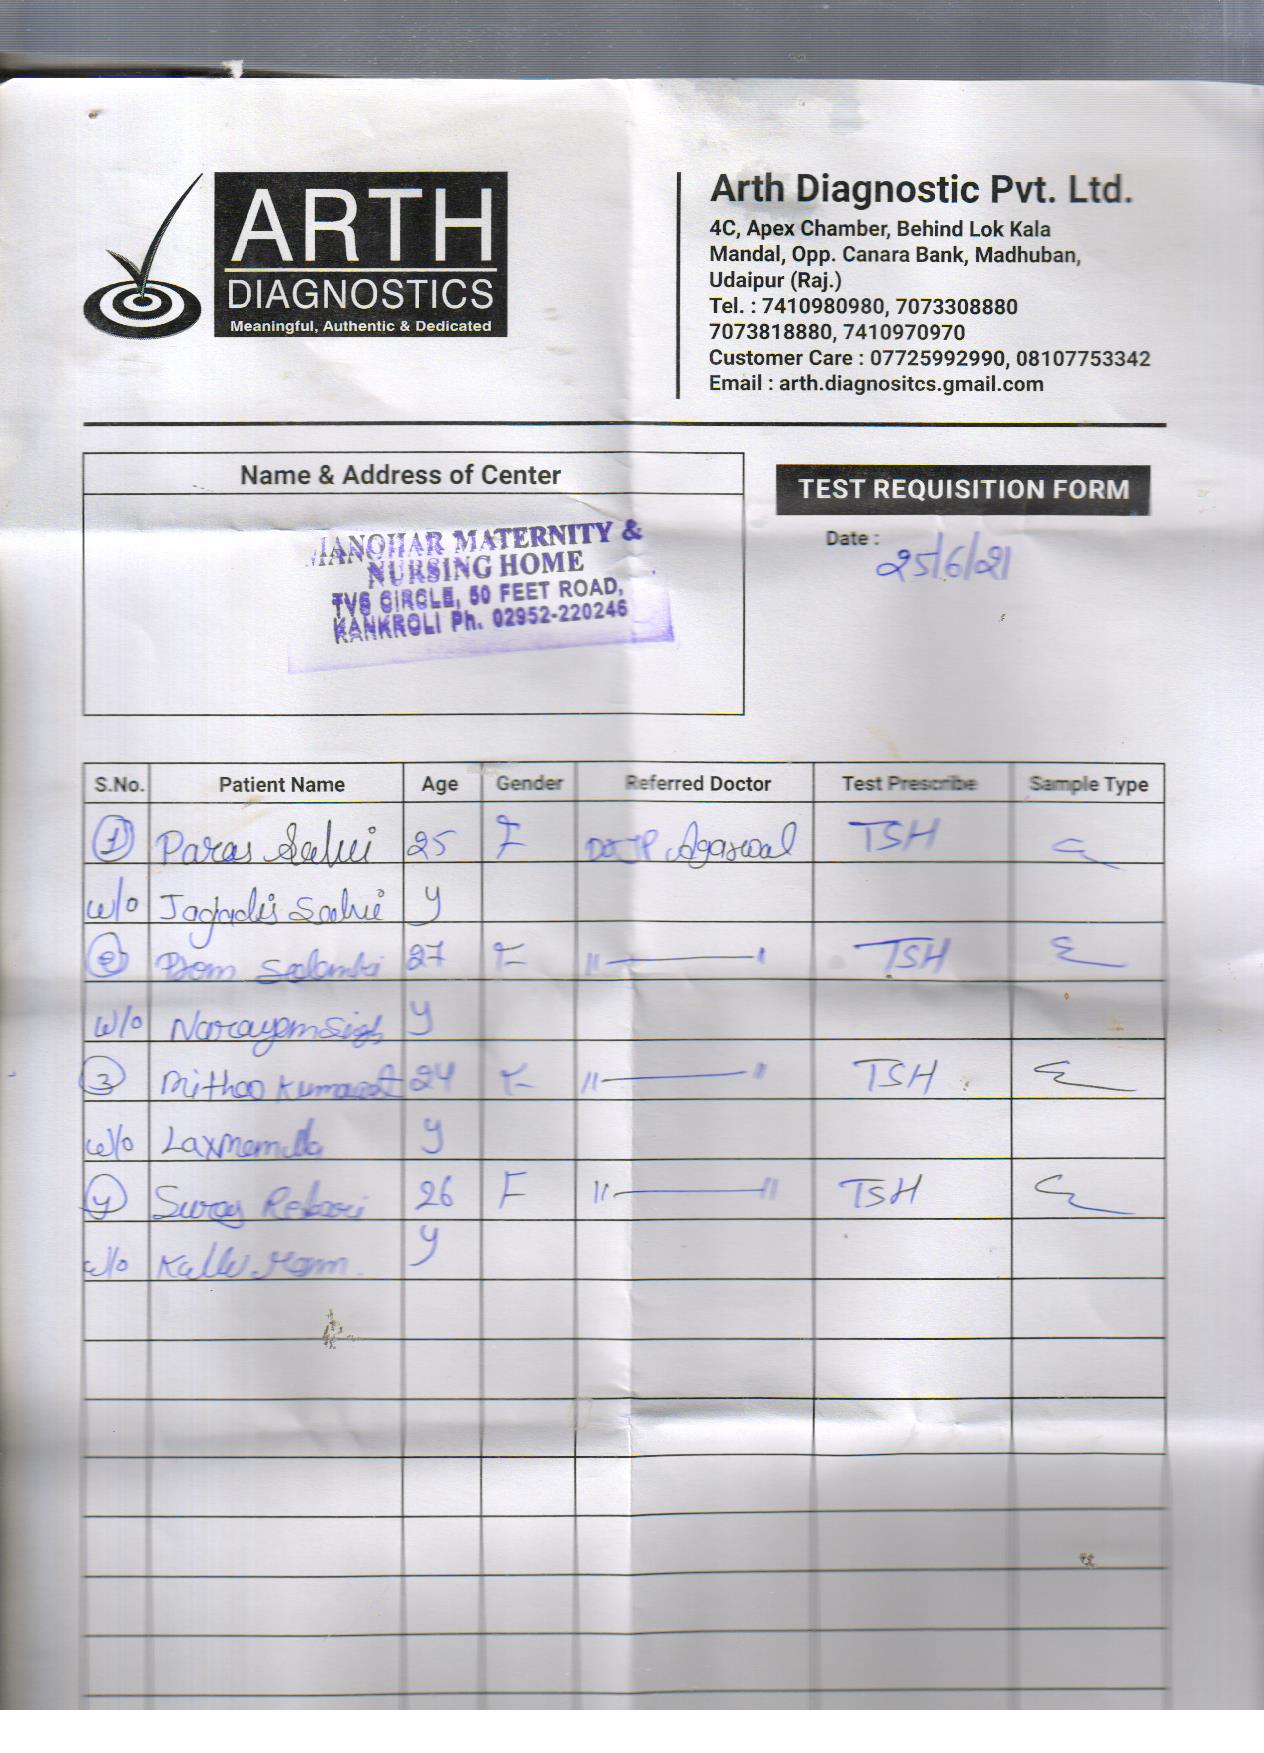 ARTH
DIAGNOSTICS
Meaningful, Authentic & Dedicated
Arth Diagnostic Pvt. Ltd.
4C, Apex Chamber, Behind Lok Kala
Mandal, Opp. Canara Bank, Madhuban,
Udaipur (Raj.)
Tel. : 7410980980, 7073308880
7073818880, 7410970970
Customer Care : 07725992990, 08107753342
Email : arth.diagnositcs.gmail.com
Name & Address of Center
MANOHAR MATERNITY &
NURSING HOME
TVS CIRCLE, 50 FEET ROAD,
KANKROLI Ph. 02952-220246
TEST REQUISITION FORM
Date : 25/6/21
S.No. Patient Name Age Gender Referred Doctor Test Prescribe Sample Type
1 Paras 25 F Agarwal TSH
w/o y
2 27 F "—" TSH
w/o y
3 24 F "—" TSH
w/o y
4 26 F "—" TSH
w/o y